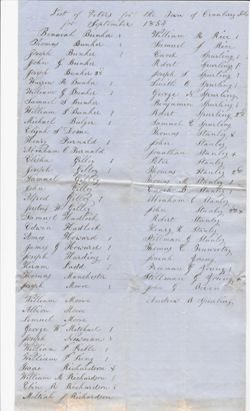 List of Voters for the Town of Cranberry Isles
September 1854
Benaiah Bunker
Thomas Bunker
Joseph Bunker
John G Bunker
Joseph Bunker 2d
Warren A Bunker
William G Bunker
Samuel S Bunker
William P Bunker
Michael
Elijah S Dome
Henry Fernald
Abraham C Fernald
Elisha Gilley
Joseph Gilley
Samuel Gilley
John Gilley
Alfred Gilley
Joseph W Gilley
Samuel Hadlock
Edwin Hadlock
Amos Howard
James G Howard
Joseph Harding
Hiram Judd
Thomas Manchester
Joseph Moore
William Moore
Albion Moore
Samuel Moore
George W Mitchell
Joseph Newman
William P Preble
William P Pung
Isaac Richardson
William M Richardson
Eben B Richardson
Meltiah J Richardson
William H Rice
Samuel J Rice
Enoch Spurling
Robert Spurling
Joseph S Spurling
Smith C Spurling
George N Spurling
Benjamin Spurling
Robert Spurling 2d
Samuel C Spurling
Thomas Stanley
John Stanley
Jonathan Stanley
Peter Stanley
Thomas Stanley 2d
M Stanley
Enoch B Stanley
Abraham C Stanley
John Stanley 2d
Robert Stanley
Henry H Stanley
Stillman G Stanley
Thomas C Stanworthy
Josiah Young
Freeman G Young
Stillman G Young
John G Wixon
Andrew B Spurling